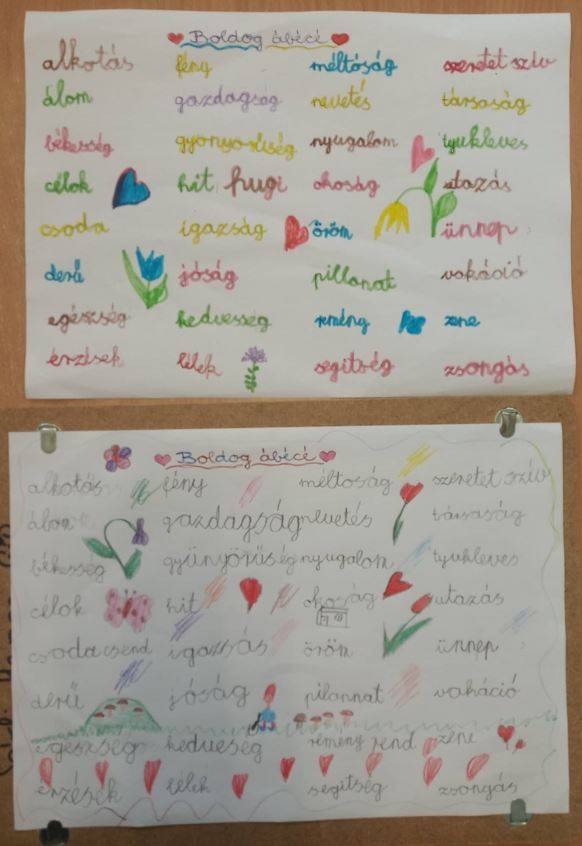 Boldog ábécé
alkotás fény méltóság szeretet szív
álom gazdagság nevetés társaság
békesség gyönyörűség nyugalom tyúkleves
célok hit hugi okoság utazás
csoda igazság öröm ünnep
derű jóság pillanat vakáció
egészség kedvesség remény zene
érzések lélek segítség zsongás
Boldog ábécé
alkotás fény méltoság szeretet szív
álom gazdagság nevetés társaság
békesség gyünyörűség nyugalom tyukleves
célok hit okoság utazás
csoda csend igazsás öröm ünnep
derű jóság pilannat vakáció
egészség kedveség remény rend zene
érzések lélek segitség zsongás